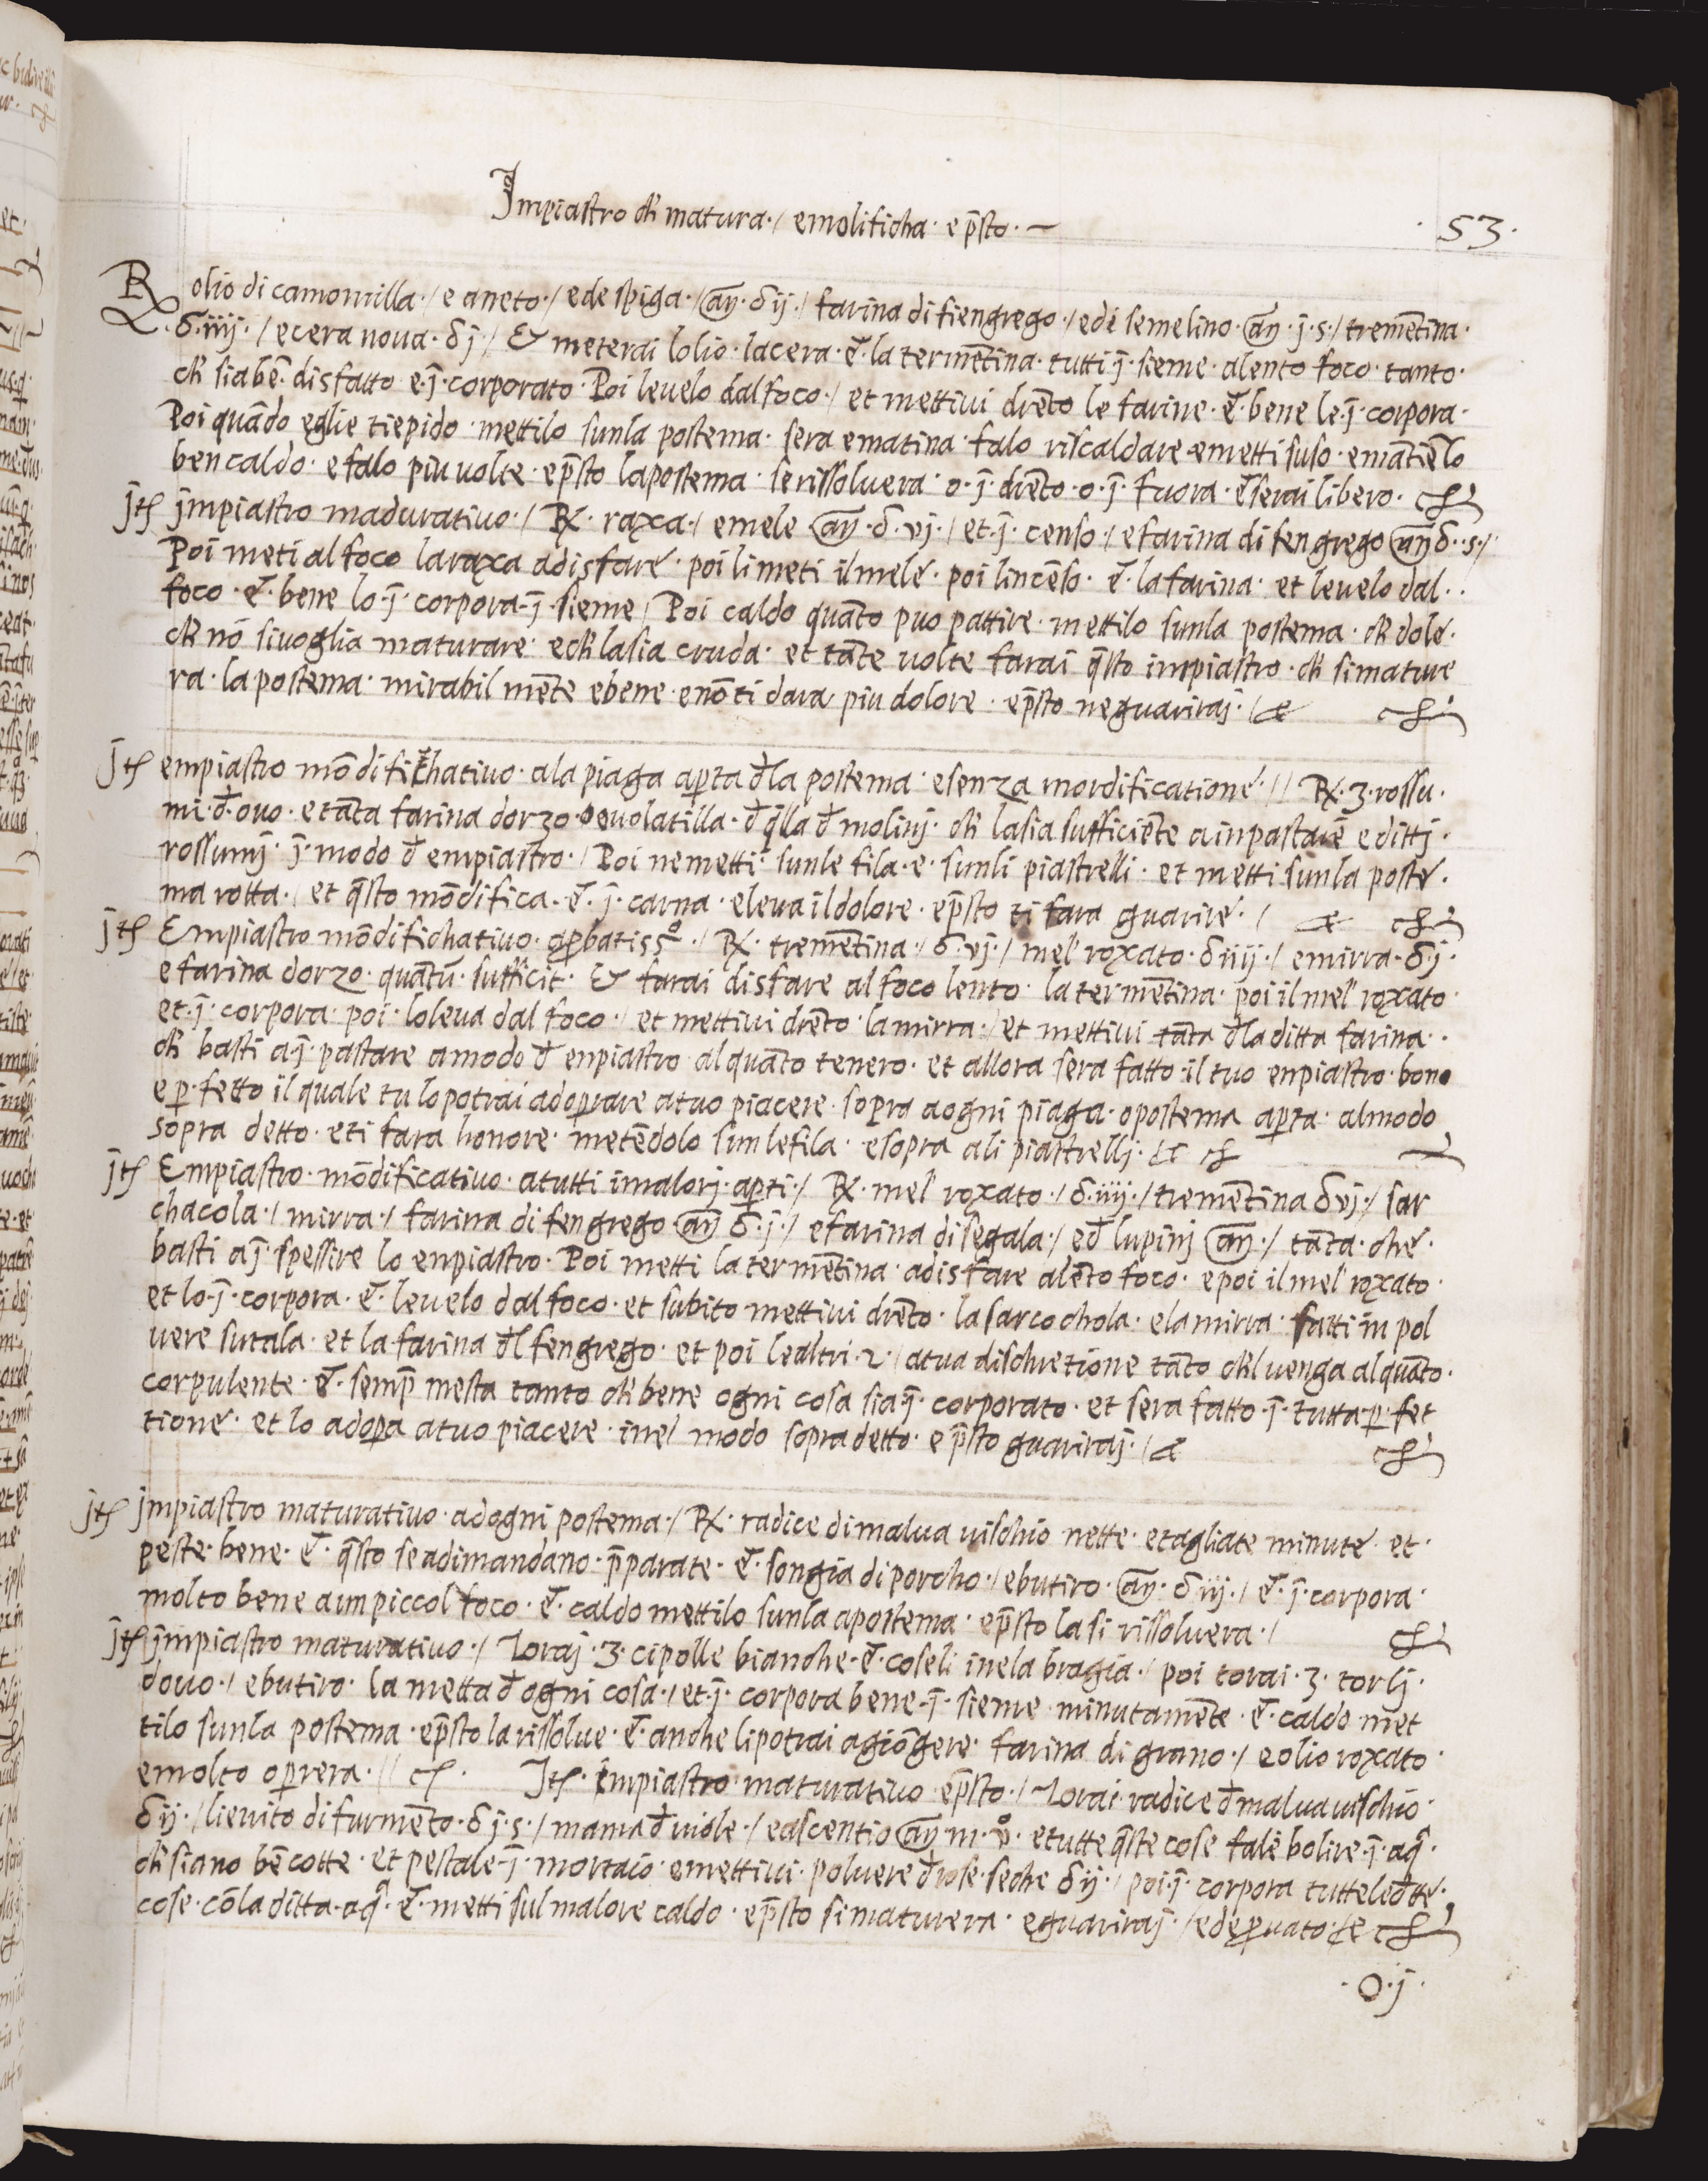 Impiastro ch̄ matura · / emolificha · e p̄sto · —
· 53 ·
℞ olio di camomilla · / e aneto · / e de spiga · / añ · ʒ ij · / farina di fiengrego · / e di semelino · añ · j · s · / trementīna ·
· ʒ · iiij · / e cera nova · ʒ j · / & meterai lolio · lacera · e͂ · la termentīna · tutti j̄ · sieme · alento foco · tanto ·
ch̄ sia bē · disfatto e · j̄ · corporato · Poi levelo dal foco · / et mettivi drēto le farine · e͂ · bene le · j̄ · corpora ·
Poi quādo eglie tiepido · mettilo sunla postema · sera e matina · falo riscaldare e metti suso · e mātiēlo
ben caldo · e falo piu volte · e p̄sto la postema · se rissolvera · o · j̄ · drēto · o · j̄ · fuora · e͂ serai libero ·
jtꝭ jmpiastro madurativo · / ℞ · raxa · / e mele añ · ʒ · vj · / et · j̄ · censo · / e farina di fengrego añ ʒ · s · /
Poi meti al foco la raxa adisfare · poi li meti il mele · poi lincēso · e͂ · la farina · et levelo dal ·
foco · e͂ · bene lo · j̄ · corpora · j̄ · sieme / Poi caldo quāto puo pattire · mettilo sunla postema · ch̄ dole ·
ch̄ nō si voglia maturare · e ch̄ la sia cruda · et tāte volte farai q̄sto impiastro · ch̄ si mature
ra · la postema · mirabil mēte e bene · e nō ti dara piu dolore · e p̄sto ne guariraj · / &
jtꝭ empiastro mōdifichativo · ala piaga ap̱ta d̄la postema · e senza mordificatione · / / ℞ · 3 · rossu ·
mi · d̄ · ovo · e tāta farina dorzo · o volatilla · d̄ q̄lla d̄ molinj · ch̄ la sia sufficiēte a inpastare e ditti ·
rossumj · j̄ · modo d̄ empiastro · / Poi ne metti · sunle fila · e · sunli piastrelli · et metti sunla poste ·
ma rotta · / et q̄sto mōdifica · e͂ · j̄ · carna · e leva il dolore · e p̄sto ti fara guarire · / &
jtꝭ Empiastro mōdifichativo · p̱batissº · / ℞ · trementīna · / ʒ · vj · / mel roxato · ʒ iiij · / e mirra · ʒ j ·
e farina dorzo · quātū · sufficit · & farai disfare al foco lento · la termentīna · poi il mel roxato ·
et · j̄ · corpora · poi · lo leva dal foco · / et mettivi drēto · la mirra · / et mettivi tāta d̄la ditta farina ·
ch̄ basti a · j̄ · pastare a modo d̄ enpiastro alquāto tenero · et allora sera fatto · il tuo enpiastro · bono
e p̱ · fetto il quale tu lo potrai adop̱rare a tuo piacere · sopra a ogni piaga · o postema ap̱ta · al modo
sopra detto · e ti fara honore · metēdolo sun le fila · e sopra ali piastrellj ·
jtꝭ Empiastro · mōdificativo · a tutti i malorj · ap̱ti · / ℞ · mel roxato · / ʒ · iiij · / trementīna ʒ vj · / sar
chacola · / mirra · / farina di fengrego · añ ʒ · j · / e farina di segala · / e d̄ lupinj añ · / tāta · che ·
basti a j̄ · spessire lo enpiastro · Poi metti la termentīna · a disfare alēto foco · e poi il mel roxato ·
et lo · j̄ · corpora · e͂ · levelo dal foco · et subito mettivi drēto · la sarcochola · e la mirra · fatti in pol
vere sutala · et la farina d̄l fengrego · et poi le altri · 2 · / a tua dischretione tāto ch̄l venga alquāto ·
corpulente · e͂ · semp̄ mesta tanto ch̄ bene ogni cosa sia j̄ · corporato · et sera fatto · j̄ · tutta p̱ · fet
tione · et lo adop̱a a tuo piacere · inel modo sopra detto · e p̄sto guariraj · / &
jtꝭ jmpiastro maturativo · ad ogni postema · / ℞ · radice di malva vischio nette · e tagliate minute · et ·
peste bene · e͂ · q̄sto se adimandano · p̄parate · e͂ · songia di porcho · / e butiro · añ · ʒ iij · / e͂ · j̄ · corpora ·
molto bene a un piccol foco · e͂ · caldo mettilo sunla apostema · e p̄sto la si rissolvera · /
jtꝭ jmpiastro maturativo · / Toraj · 3 · cipolle bianche · e͂ · coseli inela bragia · / poi torai · 3 · torlj ·
dovo · / e butiro · la metta d̄ ogni cosa · / et · j̄ · corpora bene · j̄ · sieme · minutamēte · e͂ · caldo met
tilo sunla postema · e p̄sto la rissolve · e͂ · anche li potrai agiōgere · farina di grano · / e olio roxato ·
e molto op̱rera · / / Jtꝭ · impiastro maturativo e p̄sto · / Torai · radice d̄ malva vischio ·
ʒ ij · / lievito di furmēto · ʒ j · s · / mama d̄ viole · / e ascentio añ m · v̊ · e tutte q̄ste cose fale bolire · j̄ · aq̄ ·
ch̄ siano bē cotte · et pestale · j̄ · mortaio · e mettivi · polvere d̄ rose · seche ʒ ij · / poi · j̄ · corpora tutte le dtte ·
cose · cō la ditta · aq̄ · e͂ · metti sul malore caldo · e p̄sto si maturera · e guariraj · / ed e p̱vato · &
· O · j ·